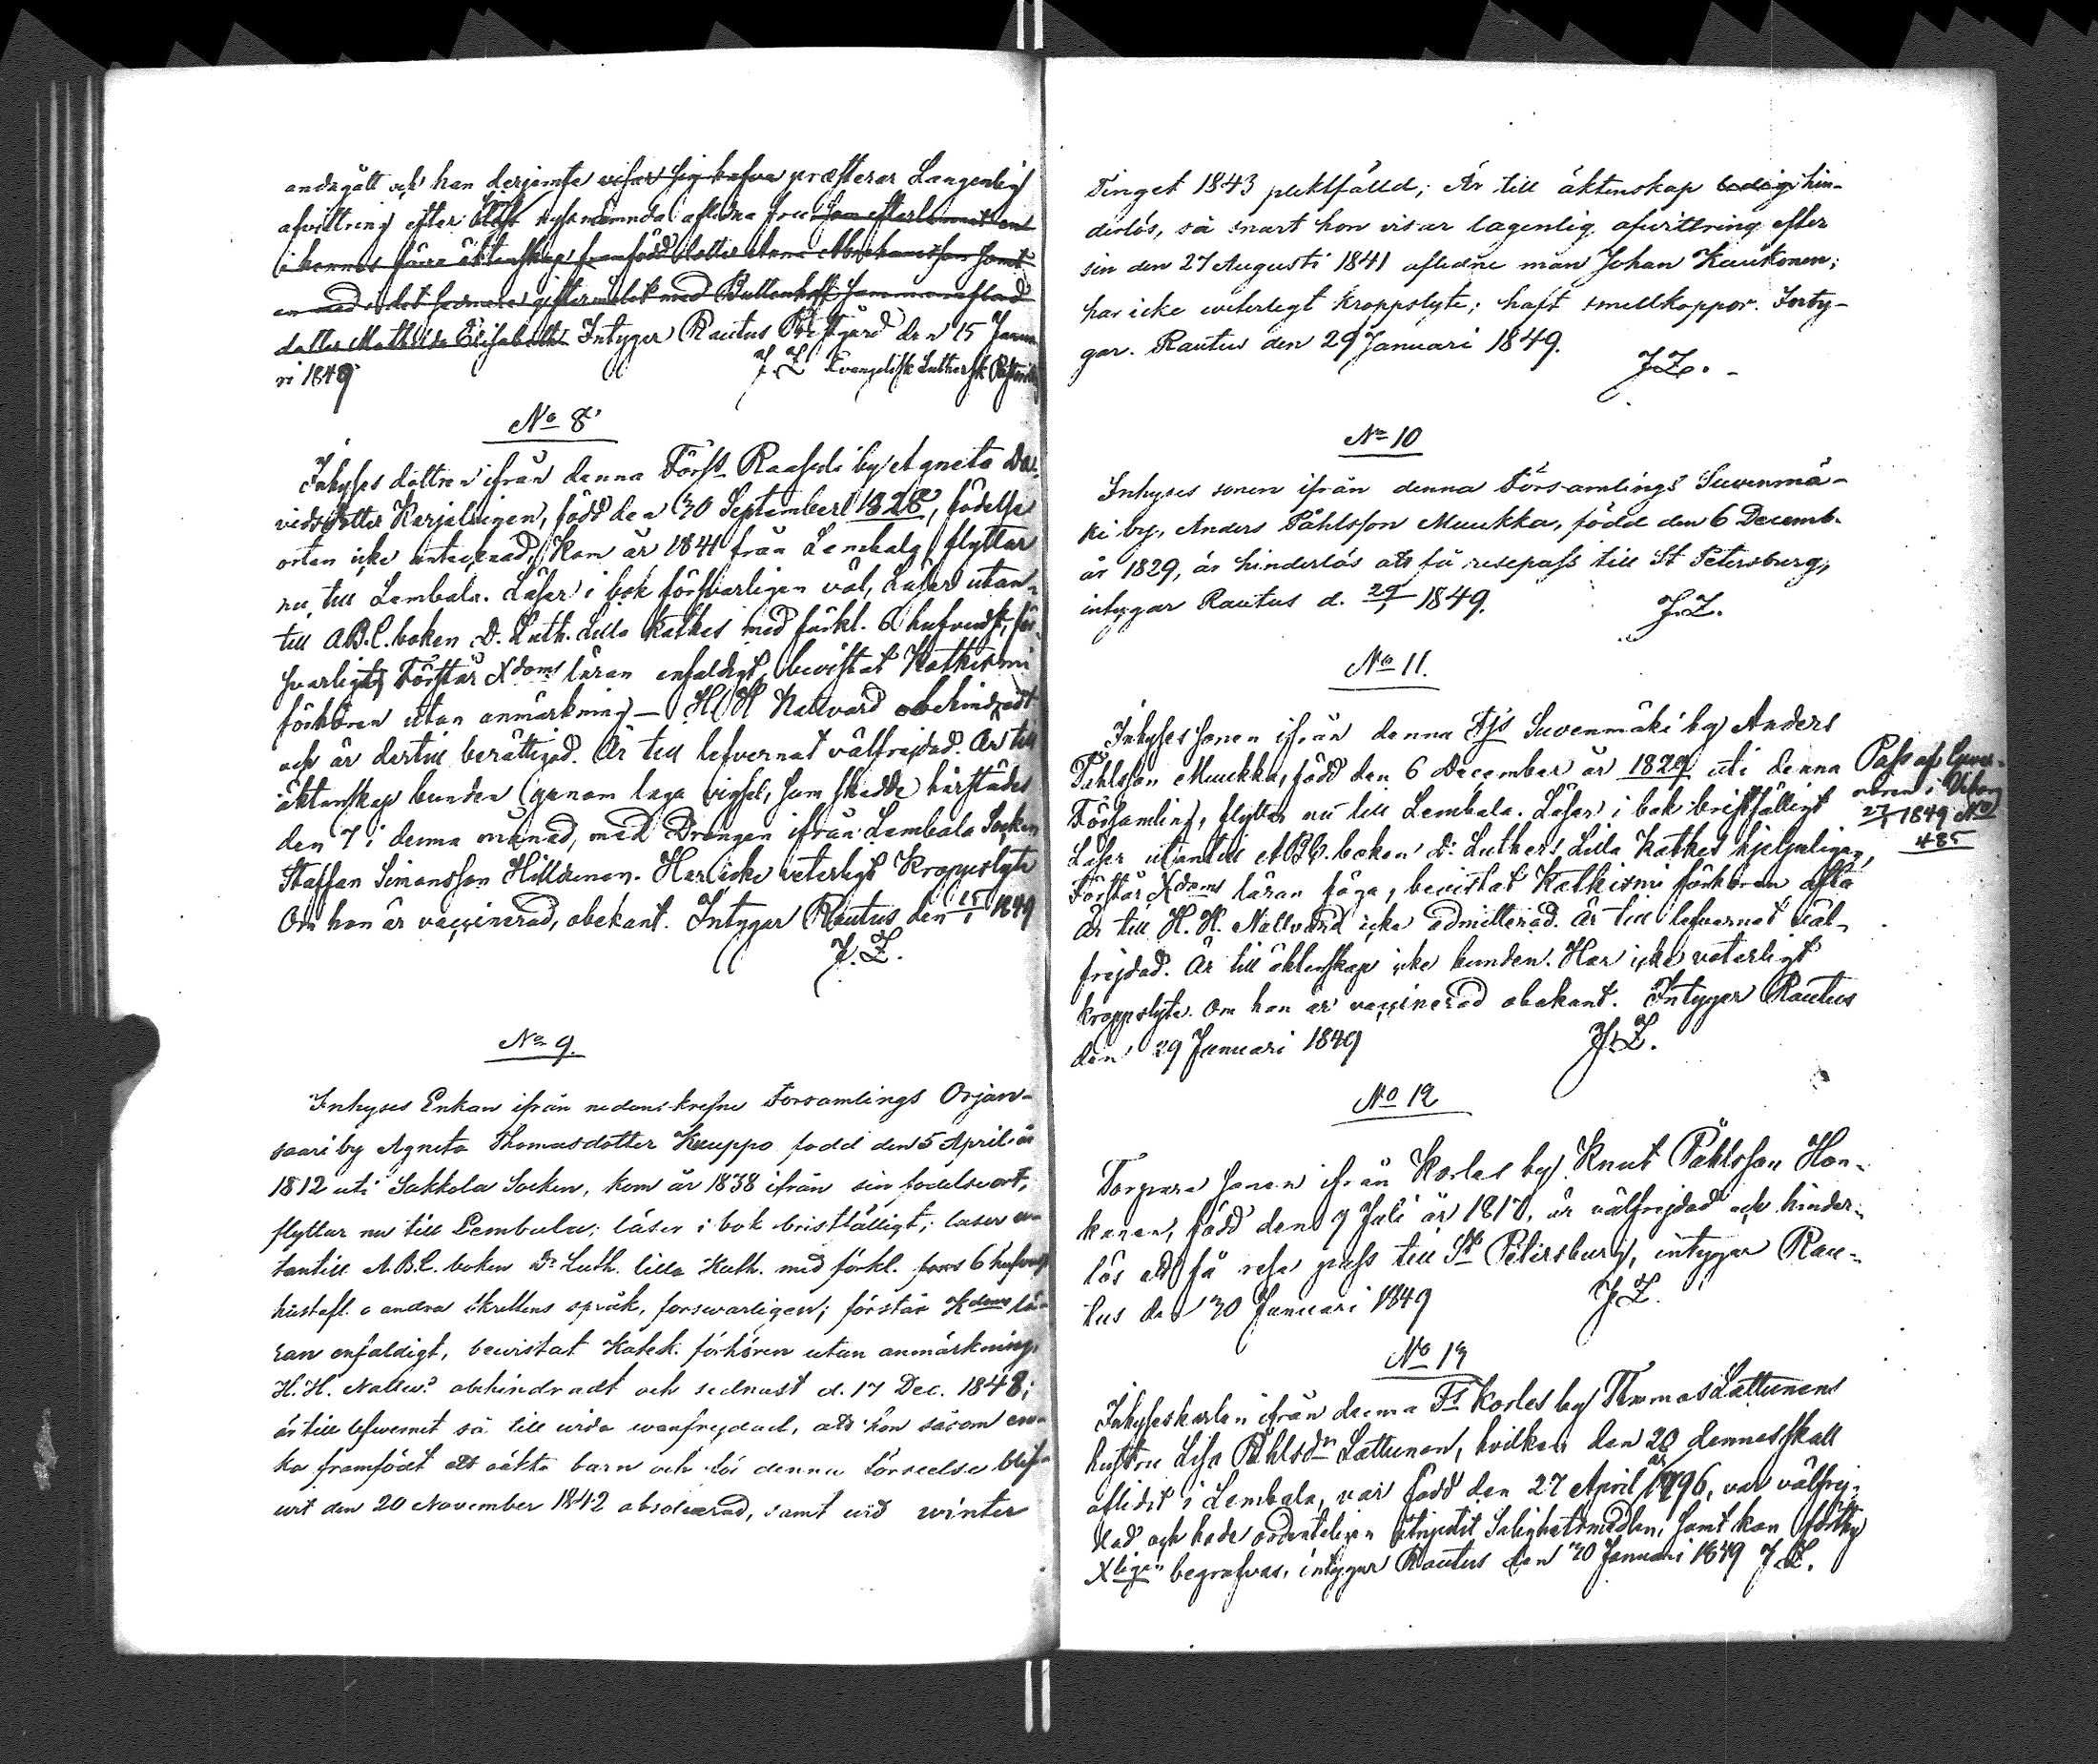 andsgält och han derjemte visar sig hafva præsterar Laugenligt
afvittring efter sin nyssnämnda aflidna fru som efterlemnat en
i hennes förra äktenskap framfödd dotter Anna Abrahamsson samt
en med i det sednare giftermålet med Bullenhoff sammanaflad
dotter Mathilda Elisabeth. Intygar Rautus Prestgård den 15 Janua
ri 1849 J. Z. Evangelisk Luthersk Pastor
No 8
Inhyses dottren ifrån denna Förs. Raasuli by Agneta Da-
vidsdotter Karjalainen, född den 30 September 1828, födelse
orten icke antecknad, Kom år 1841 från Lembala, flyttar
nu till Lembala. Läser i bok försvarligen väl, Läser utan-
till A.B.C. boken D. Luth. Lilla Kathes med förkl. 6 hufvudst. för-
svarligt; Förstår Xdoms läran enfaldigt, bevistat Katkismi
förhören utan anmärkning — H. H. Nattvard obehindradt
och är dertill berättigad. Är till lefvernet välfrejdad. Är till
äktenskap bunden genom laga vigsel, som skedde härstädes
den 7 i denna månad, med Drengen ifrån Lembala Socken
Staffan Simonsson Hilldenen. Har icke veterligt Kroppslyte
Om hon är vaccinerad, obekant. Intygar Rautus den 15/1 1849
J. Z.
No 9.
Inhyses Enkan ifrån nedanskrefne Församlings Orjan-
saari by Agneta Thomasdotter Kauppo född den 5 April år
1812 uti Sakkola Socken, kom år 1838 ifrån sin födelseort,
flyttar nu till Lembala; läser i bok bristfälligt; läser u-
tantill A.B.C. boken Dr Luth. lilla Kath. med förkl. 6 hufvudst
hustafl. o andra skriftens språk, forswarligen; förstår Xdoms lä-
ran enfaldigt, bewistat Katek. förhören utan anmärkning,
H. H. Nattw. obehindradt och sednast d. 17 Dec. 1848;
är till lefwernet så till wida wanfrejdad, att hon såsom en-
ka framfödt ett oäkta barn och för denna förseelse blif-
wit den 20 November 1842 absolverad, samt wid winter
Tinget 1843 pliktfälld; Är till äktenskap ledig hin-
derlös, så snart hon visar lagenlig afwittring efter
sin den 27 Augusti 1841 aflidne man Johan Kaukonen;
har icke weterligt kroppslyte; haft smittkoppor. Inty-
gar. Rautus den 29 Januari 1849.
J. Z. -
No 10
Inhyses sonen ifrån denna Församlings Suvenmä-
ki by, Anders Påhlsson Muukka, född den 6 Decemb.
år 1829, är hinderlös att få resepass till St Petersburg,
intygar Rautus d. 29/1 1849. J. Z.
No 11.
Inhyses sonen ifrån denna Fgs Suvenmäki by Anders
Påhlsson Muukka, född den 6 December år 1829 uti denna
Församling, flyttar nu till Lembala. Läser i bok bristfälligt
Läser utantill ABC. boken Dr Luthers Lilla Kathes hjelpligen,
Förstår Xdoms läran föga, bevistat Katkismi förhören ofta
Är till H. H. Nattvard icke admitterad. Är till lefvernet väl-
frejdad. Är till äktenskap icke bunden. Har icke veterligt
kroppslyte. Om han är vaccinerad obekant. Intygar Rautus
den 29 Januari 1849 J. Z.
Pass af Guver-
nören i Viborg
27/1 1849 No
485
No 12
Torpare sonen ifrån Korles by Knut Påhlsson Hon-
kanen, född den 7 Juli år 1817, är välfrejdad och hinder-
lös att få rese pass till St Petersburg, intygar Rau-
tus den 30 Januari 1849 J. Z.
No 13
Inhyseskarlen ifrån denna Fs Korles by Thomas Lattunens
hustru Lisa Påhlsdr Lattunen, hvilken den 20 dennes skall
aflidit i Lembala, var född den 27 April år 1796, var välfrej-
dad och hade ordenteligen utnjutit Salighetsmedlen, samt kan förthy
Xligen begrafvas, intygar Rautus den 30 Januari 1849 J. Z.